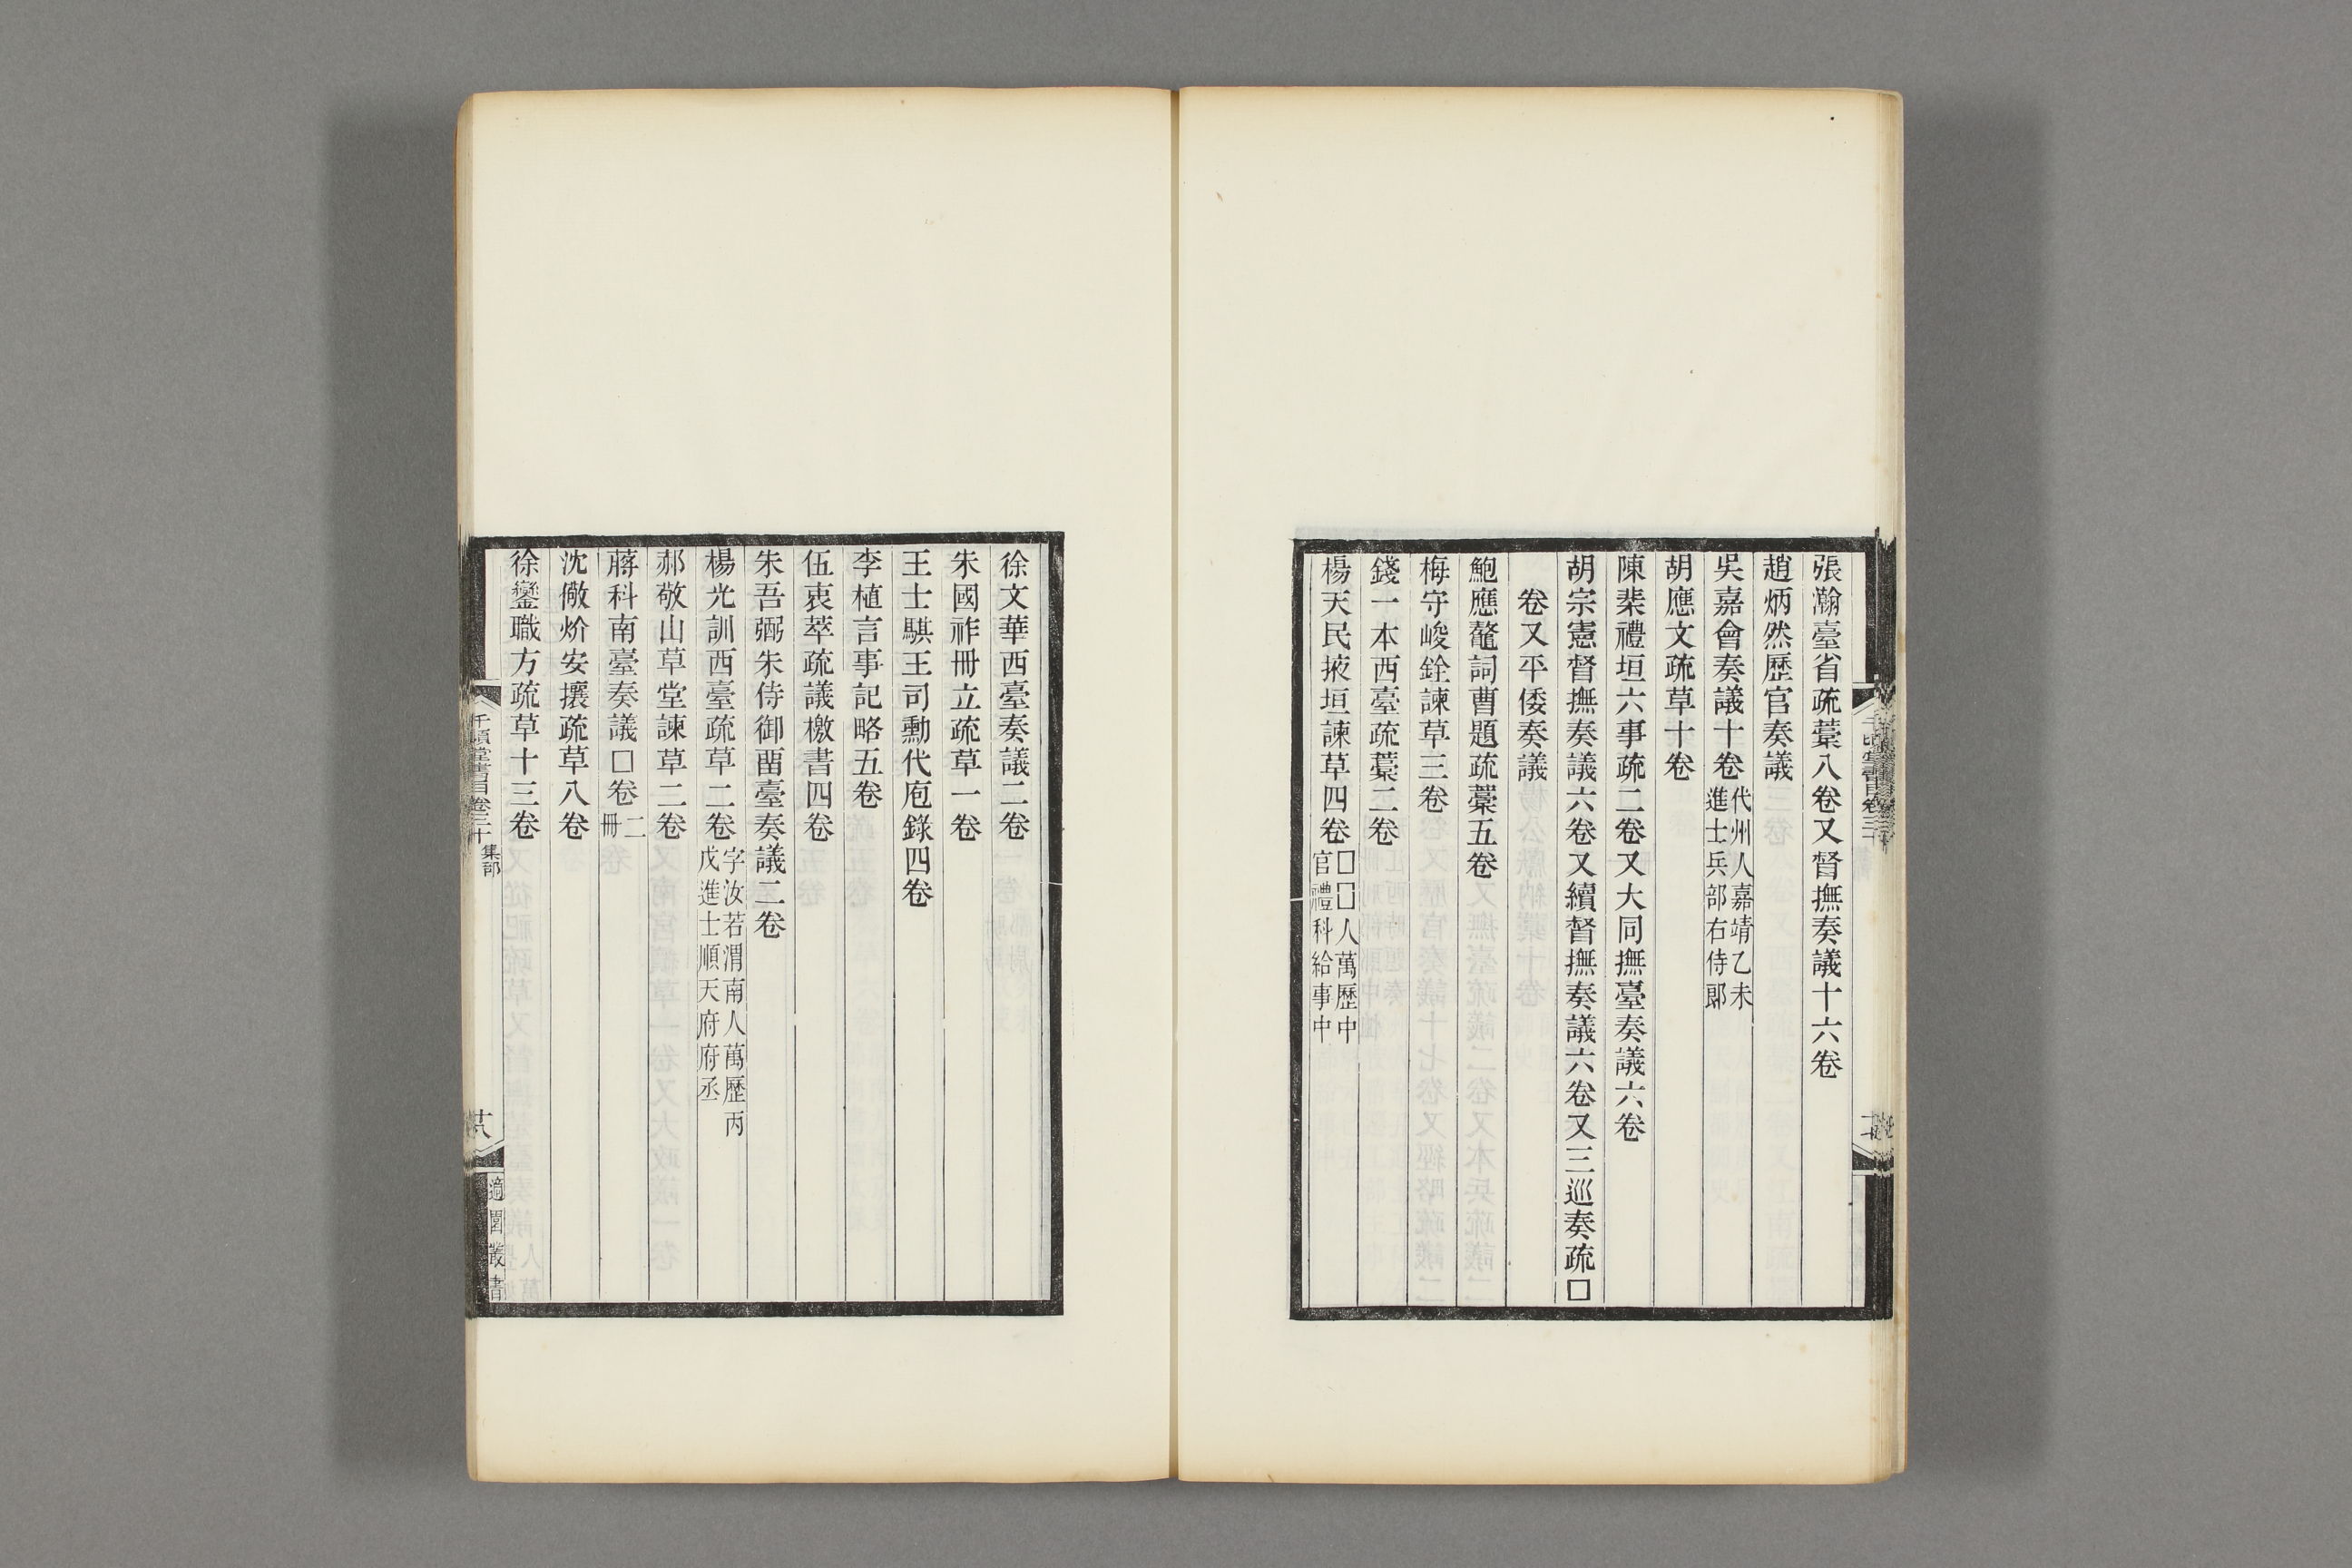 張瀚臺省疏藁八卷又督撫奏議十六卷
趙炳然歷官奏議
吳嘉會奏議十卷代州人嘉靖乙未進士兵部右侍郞
胡應文疏草十卷
陳棐禮垣六事疏二卷又大同撫臺奏議六卷
胡宗憲督撫奏議六卷又續督撫奏議六卷又三巡奏疏□
卷又平倭奏議
鮑應鼇詞曹題疏藁五卷
梅守峻銓諫草三卷
錢一本西臺疏藁二卷
楊天民掖垣諫草四卷□□人萬歷中官禮科給事中
徐文華西臺奏議二卷
朱國祚冊立疏草一卷
王士騏王司勳代庖錄四卷
李植言事記略五卷
伍袁萃疏議檄書四卷
朱吾弼朱侍御畱臺奏議二卷
楊光訓西臺疏草二卷字汝若渭南人萬歷丙戌進士順天府府丞
郝敬山草堂諫草二卷
蔣科南臺奏議□卷二冊
沈儆炌安攘疏草八卷
徐鑾職方疏草十三卷
千頃堂書目卷三十 集部
十八
適園叢書